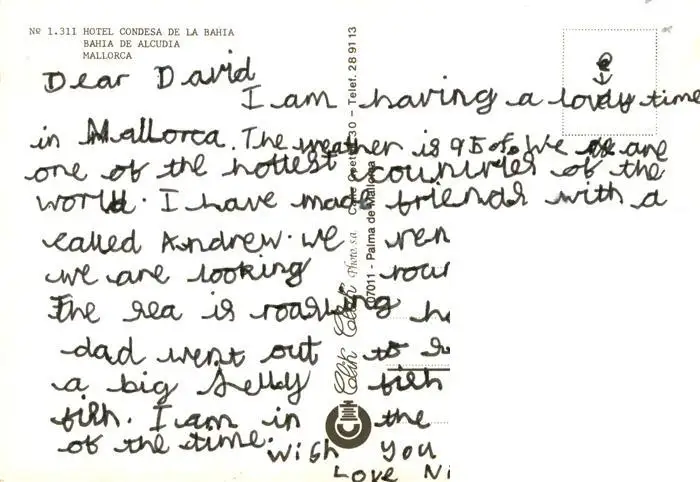 Nº 1.311 HOTEL CONDESA DE LA BAHIA
BAHIA DE ALCUDIA
MALLORCA
Dear David
I am having a lovely time
in Mallorca. The weather is 95 of. We are
one of the hottest countries of the
world. I have made friends with a
called Andrew. We ren
we are looking roun
The sea is roasting ho
dad went out to su
a big Jelly fish
fish. I am in the
of the time. Wish you
Love Ni
Clik Photo, s.a. 30 - Telef. 28 91 13
07011 - Palma de Mallorca